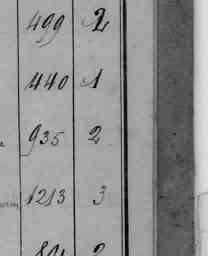 499 2
440 1
935 2
1213 3